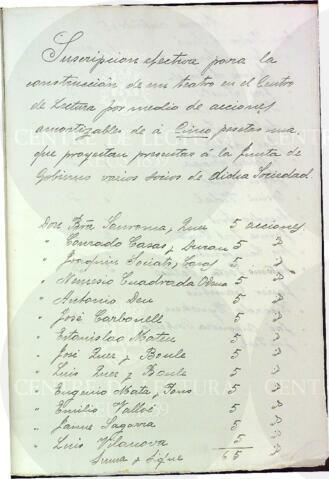 Suscripcion efectiva para la
construcción de un teatro en el Centro
de Lectura por medio de acciones
amortizables de á Cinco pesetas una
que proyectan presentar á la Junta de
Gobierno varios socios de dicha Sociedad.
Don Bra Sanroma, Quer 5 acciones
" Conrado Casas y Duran 5 "
" Joaquin Sociats, Carol 5 "
" Nemesio Cuadrada 5 "
" Antonio Deu 5 "
" José Carbonell 5 "
" Estanislao Mateu 5 "
" José Quer y Boule 5 "
" Luis Quer y Boule 5 "
" Eugenio Mata, Pons 5 "
" Emilio Vallvé 5 "
" Jaime Sagarra 5 "
" Luis Vilanova 5 "
Suma y Sigue 65 "
CENTRE DE LECTURA
1859